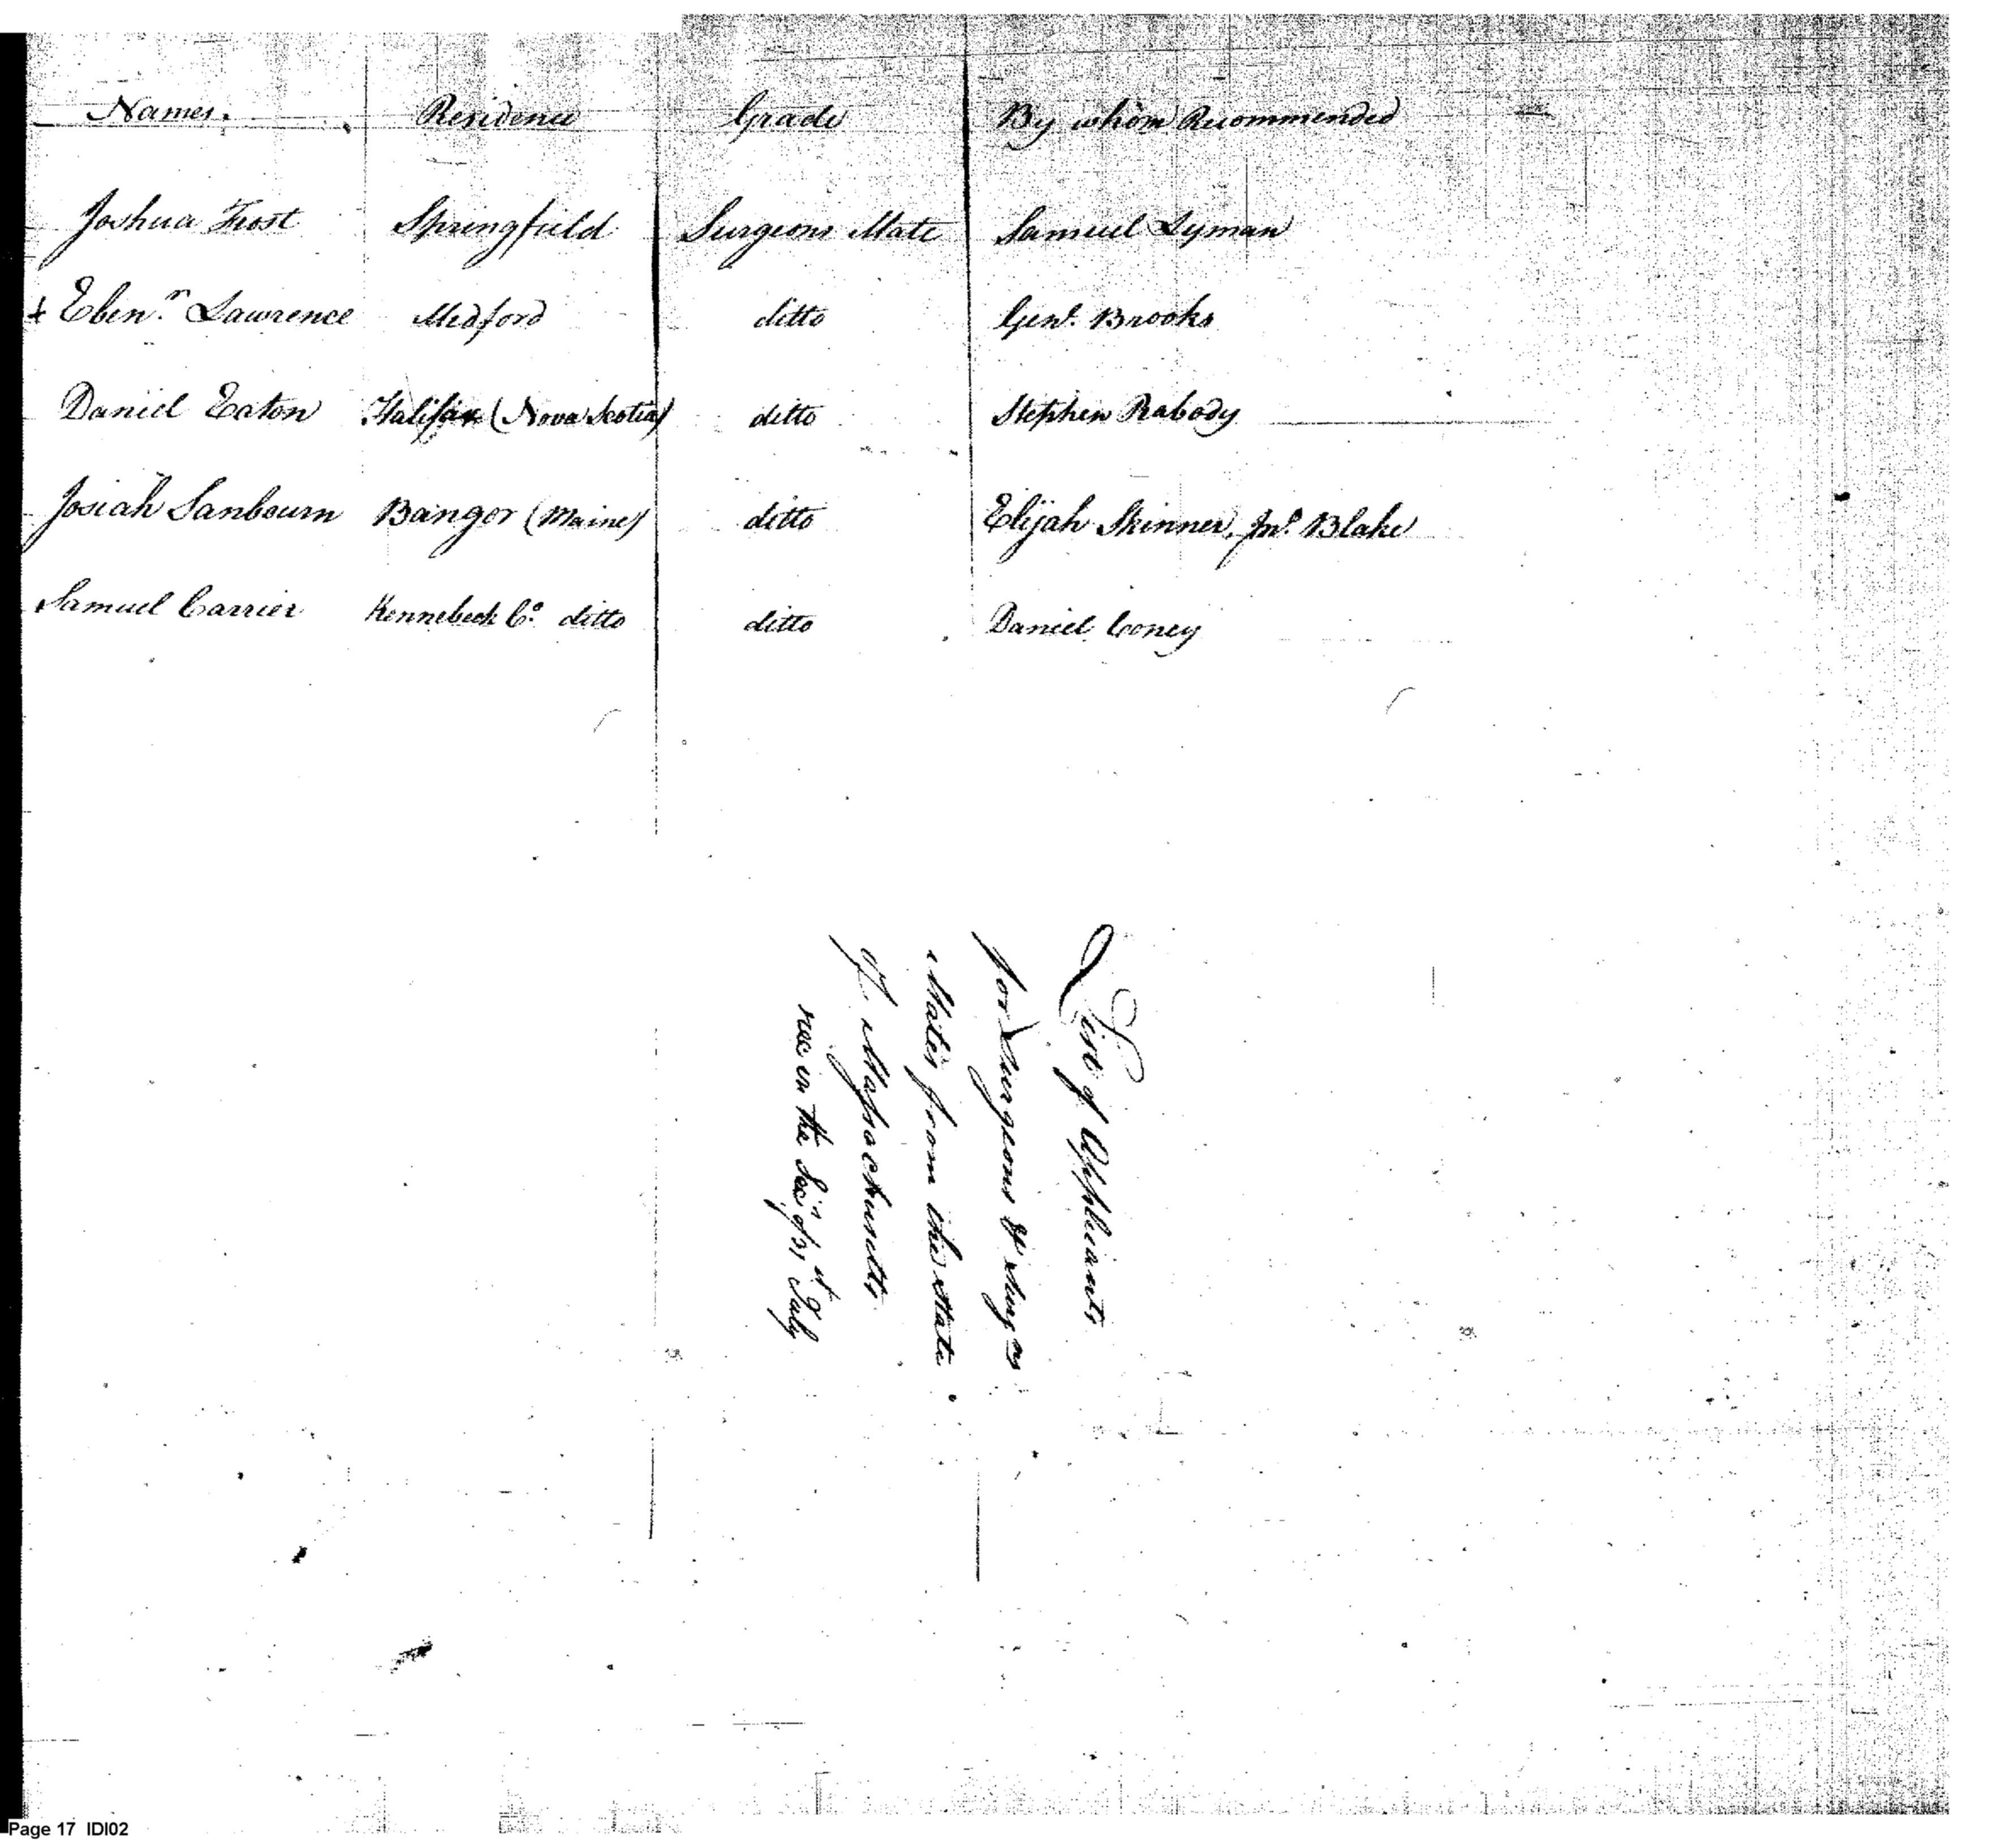 Names. Residence Grade By whom Recommended
Joshua Frost Springfield Surgeons Mate Samuel Lyman
+ Eben.r Lawrence Medford ditto Genl. Brooks
Daniel Eaton Halifax (Nova Scotia) ditto Stephen Peabody
Josiah Sanbourn Bangor (Maine) ditto Elijah Skinner, Jno. Blake
Samuel Carrier Kennebeck Co. ditto ditto Daniel Coney
List of Applicants
for Surgeons & Surg ns
Mates from the State
of Massachusetts
rec in the July
Page 17 IDI02